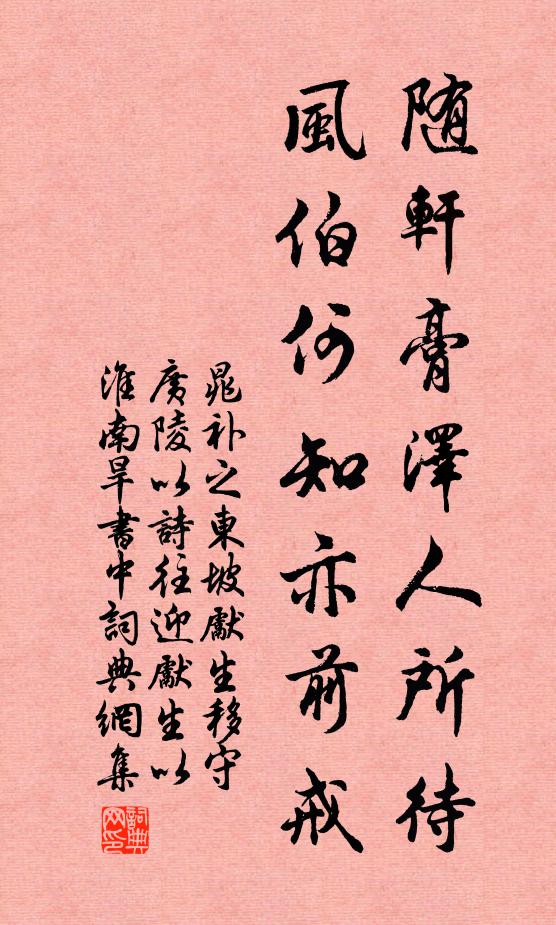 随軒膏澤人所待
風伯何知亦前戒
晁补之東坡獻生移守
廣陵以詩往迎獻生以
淮南旱書中詞典網集
詞典网印